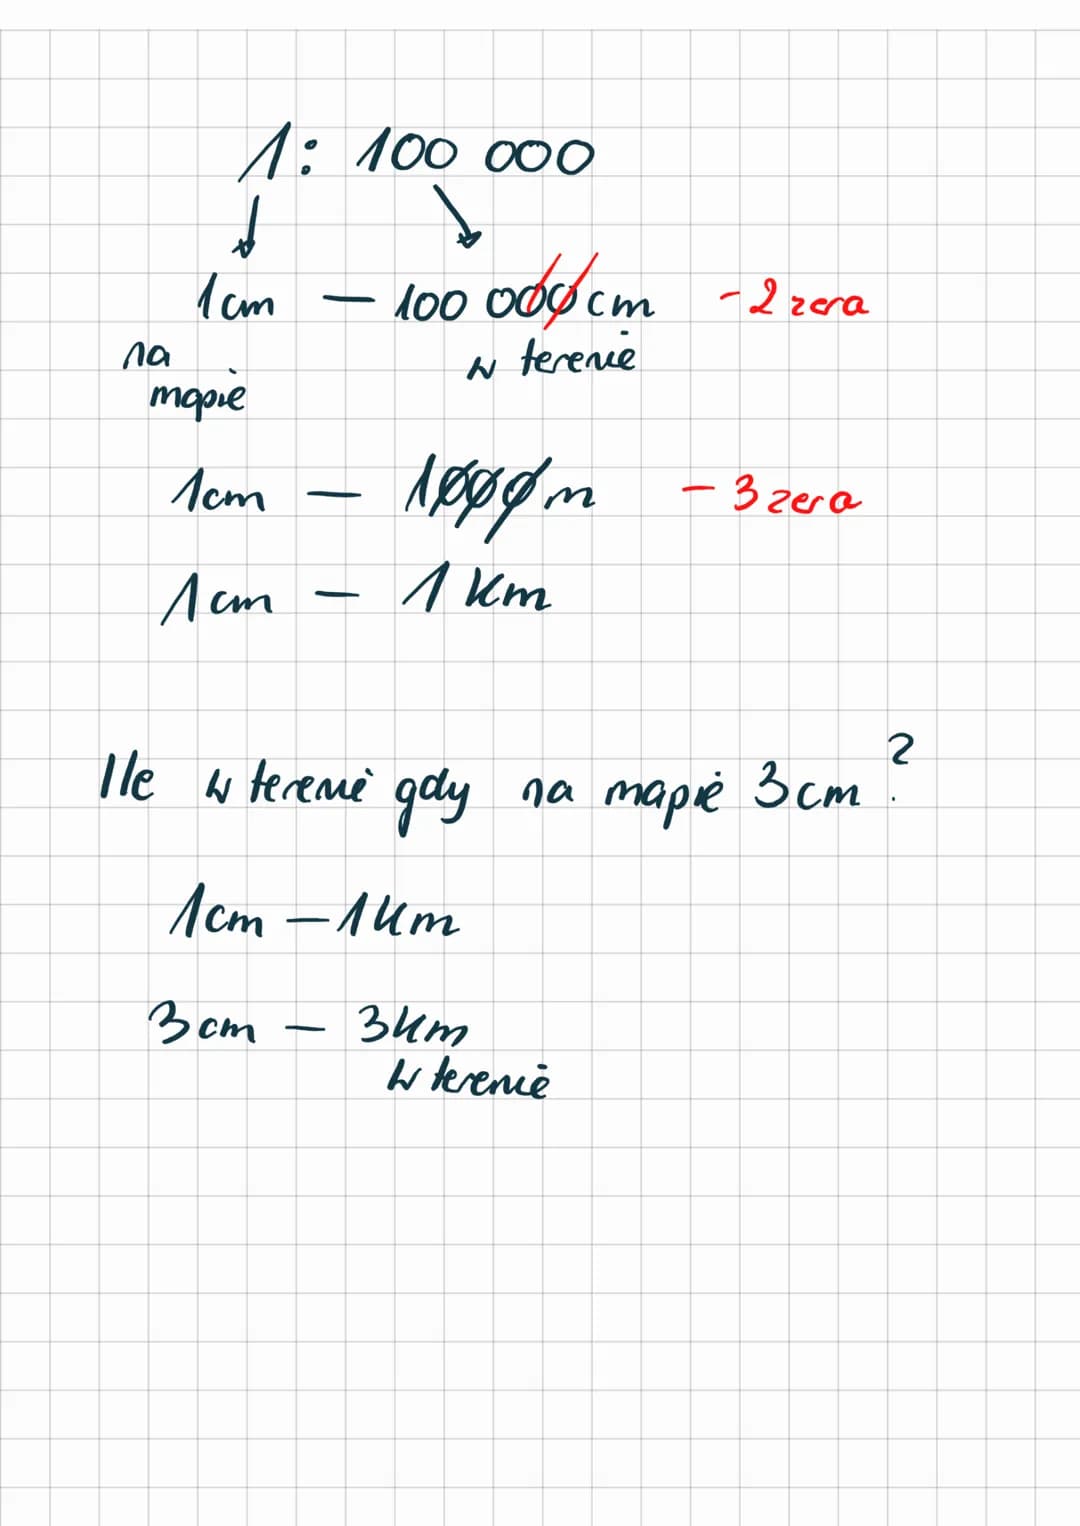 1: 100 000
1cm — 100 000 cm - 2 zera
na mapie
w terenie
1cm — 1000 m - 3 zera
1cm — 1 km
Ile w terenie gdy na mapie 3cm?
1cm — 1km
3cm — 3km
w terenie